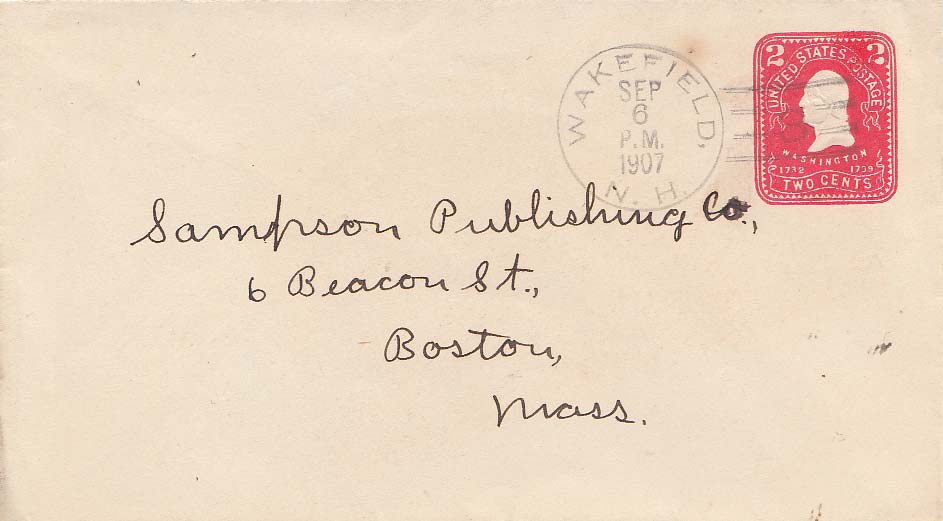 WAKEFIELD,
SEP
6
P.M.
1907
N. H.
2 2
UNITED STATES POSTAGE
WASHINGTON
1732 1799
TWO CENTS
Sampson Publishing Co.,
6 Beacon St.,
Boston,
Mass.